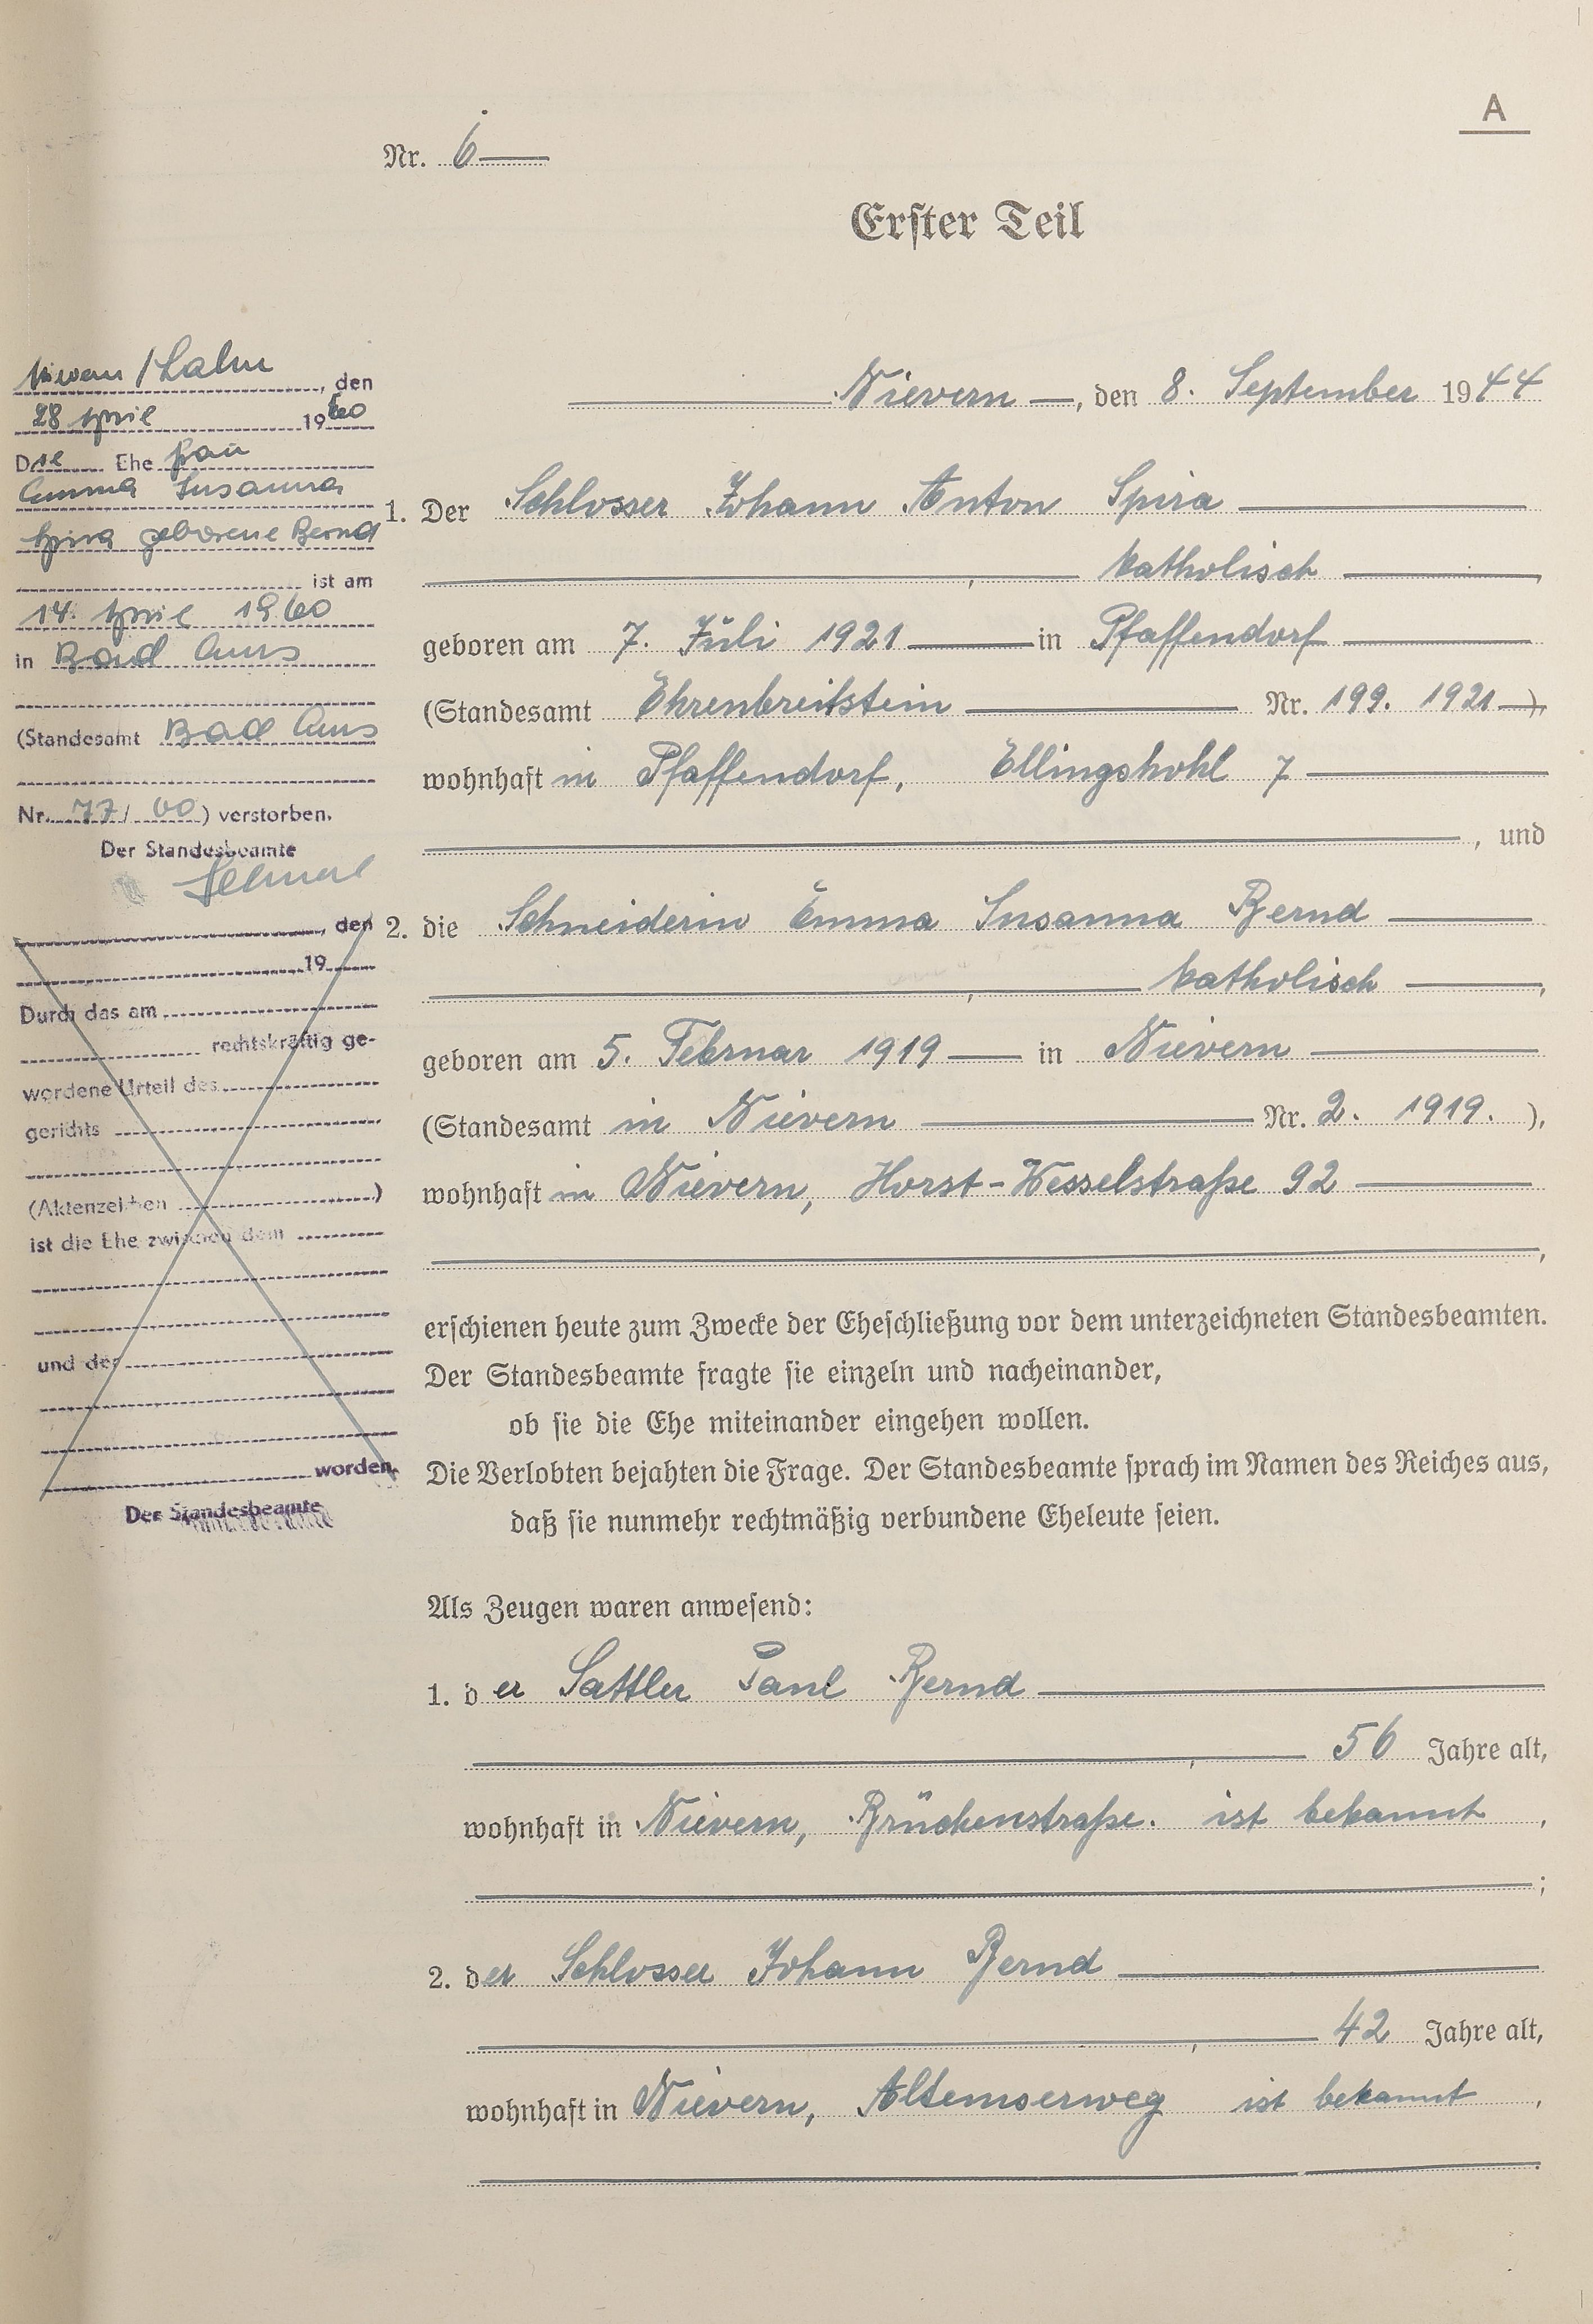 A
Nr. 6
Erster Teil
Nievern, den 8. September 1944
1. Der Schlosser Johann Anton Spira
, katholisch,
geboren am 7. Juli 1921 in Pfaffendorf
(Standesamt Ehrenbreitstein Nr. 199. 1921),
wohnhaft in Pfaffendorf, Ellingshohl 7
, und
2. die Schneiderin Emma Susanna Bernd
, katholisch,
geboren am 5. Februar 1919 in Nievern
(Standesamt in Nievern Nr. 2. 1919.),
wohnhaft in Nievern, Horst-Wesselstraße 92
,
erschienen heute zum Zwecke der Eheschließung vor dem unterzeichneten Standesbeamten.
Der Standesbeamte fragte sie einzeln und nacheinander,
ob sie die Ehe miteinander eingehen wollen.
Die Verlobten bejahten die Frage. Der Standesbeamte sprach im Namen des Reiches aus,
daß sie nunmehr rechtmäßig verbundene Eheleute seien.
Als Zeugen waren anwesend:
1. der Sattler Paul Bernd
, 56 Jahre alt,
wohnhaft in Nievern, Brückenstraße. ist bekannt,
;
2. der Schlosser Johann Bernd
, 42 Jahre alt,
wohnhaft in Nievern, Altemserweg ist bekannt,
.
Nievern/Lahn, den
28 April 1960
Die Ehefrau
Emma Susanna
Spira geborene Bernd
ist am
14. April 1960
in Bad Ems
(Standesamt Bad Ems
Nr. 77/60) verstorben.
Der Standesbeamte
, den
19
Durch das am
rechtskräftig ge-
wordene Urteil des
gerichts
(Aktenzeichen )
ist die Ehe zwischen dem
und der
worden.
Der Standesbeamte